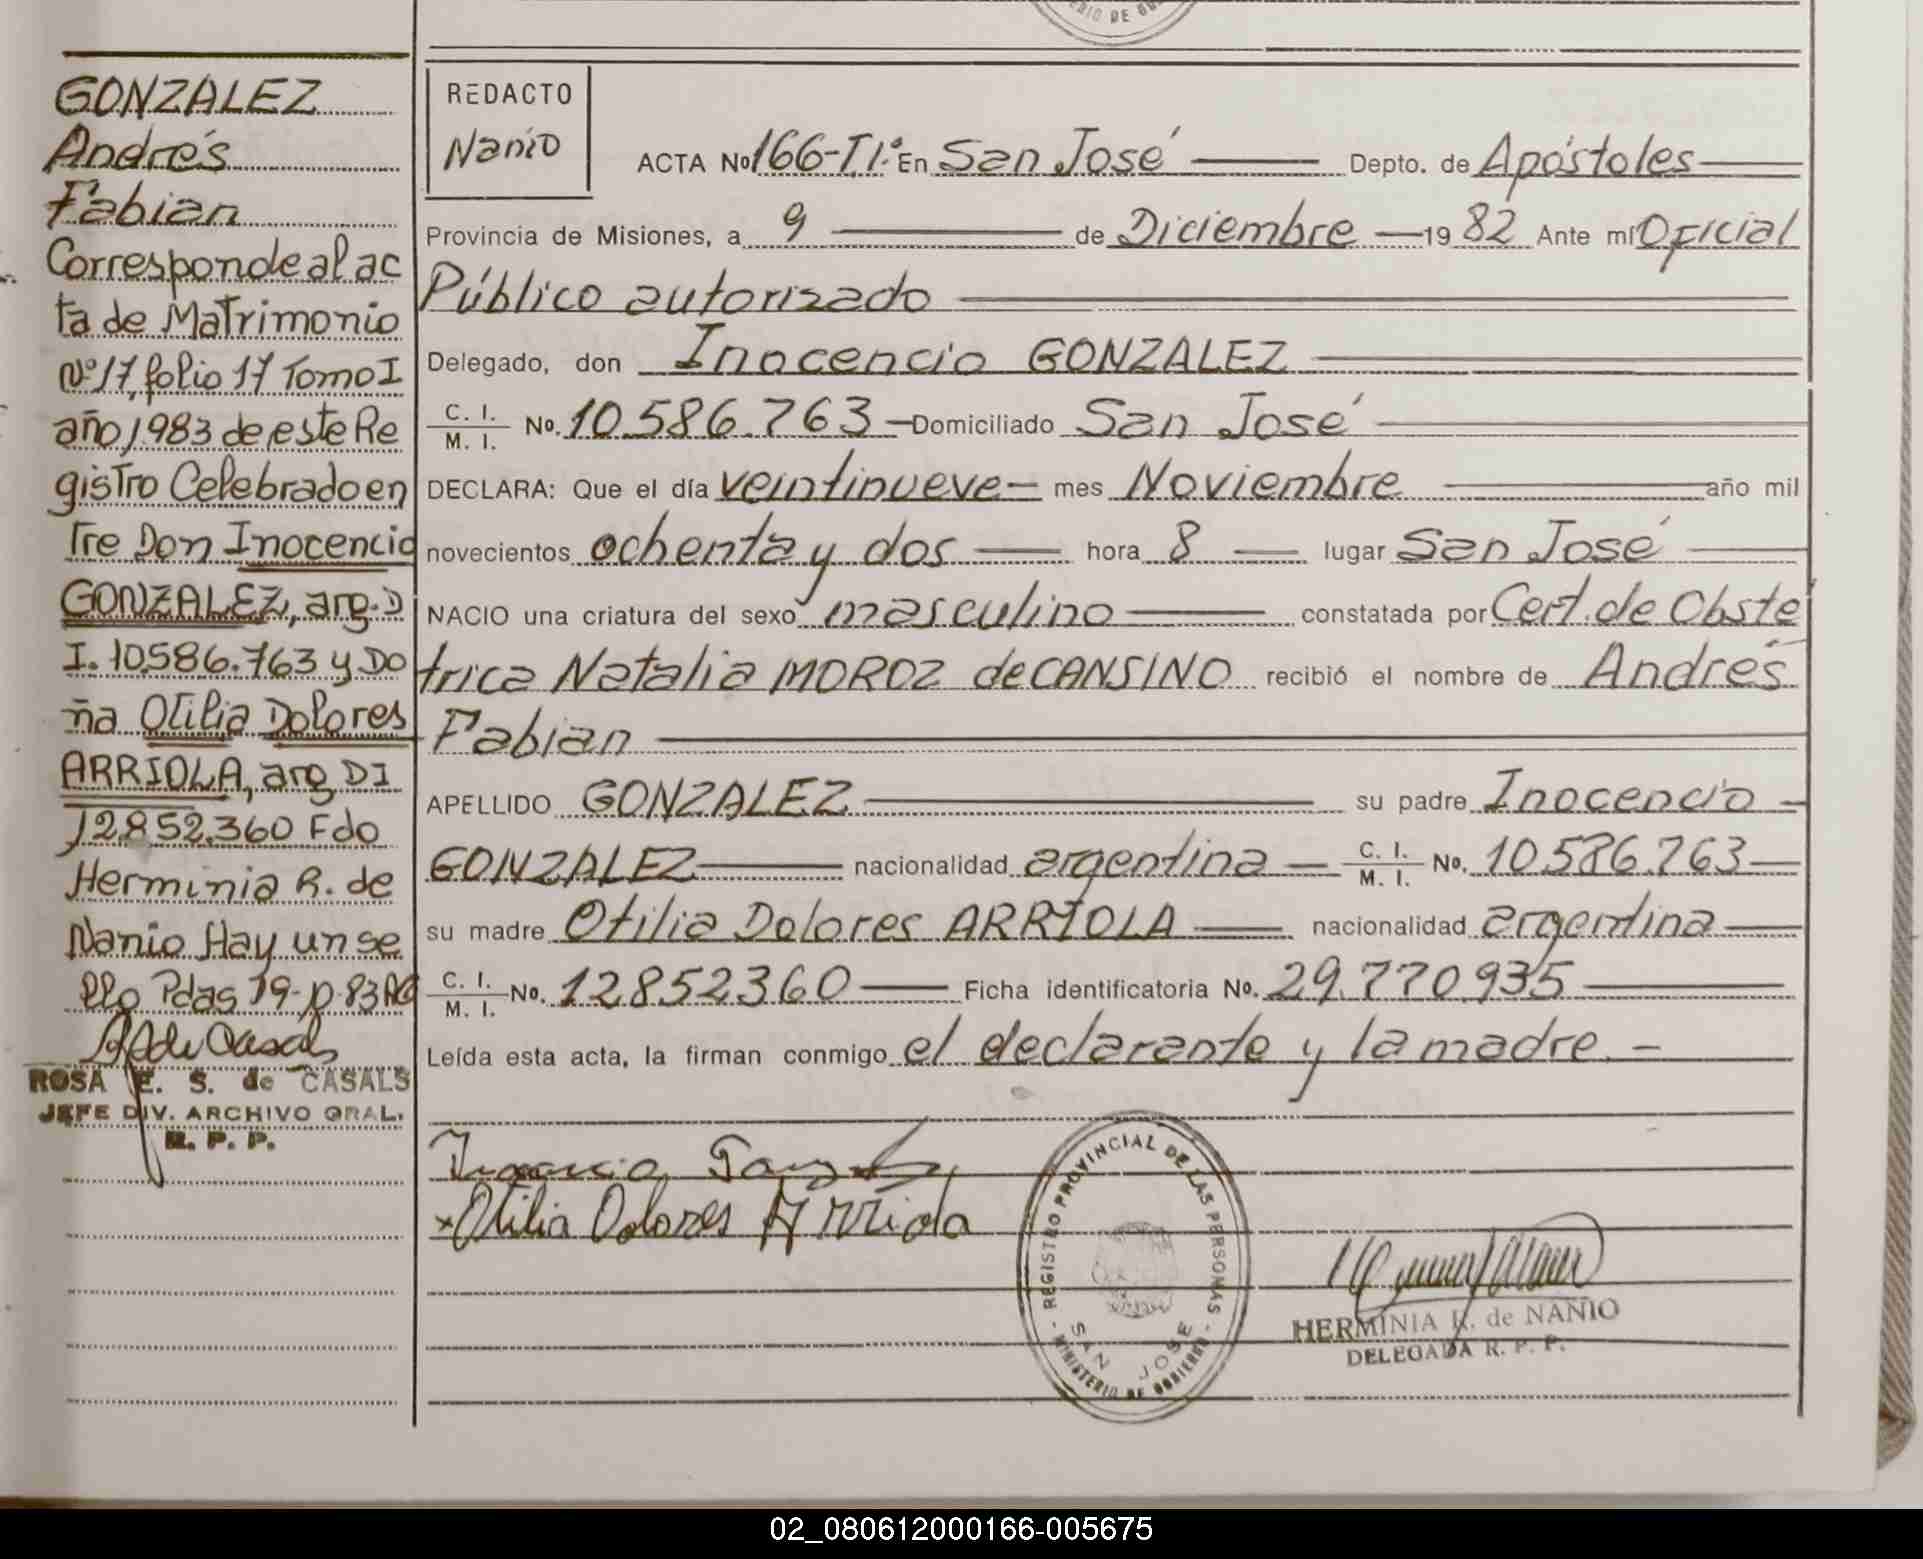 GONZALEZ
Andrés
Fabian
Corresponde al ac
ta de Matrimonio
Nº17, folio 17 Tomo I
año 1983 de este Re
gistro Celebrado en
tre Don Inocencio
GONZALEZ, arg. D
I. 10586.763 y Do
ña Otilia Dolores
ARRIOLA, arg DI
12.852.360 Fdo
Herminia R. de
Nanio Hay un se
llo Pdas 19-
ROSA E. S. de CASALS
JEFE DIV. ARCHIVO GRAL.
R. P. P.
REDACTO
Nanio
ACTA Nº 166-T.1º En San José Depto. de Apóstoles
Provincia de Misiones, a 9 de Diciembre 1982 Ante mí Oficial
Público autorizado
Delegado, don Inocencio GONZALEZ
C. I. / M. I. No. 10.586.763 Domiciliado San José
DECLARA: Que el día veintinueve mes Noviembre año mil
novecientos ochenta y dos hora 8 lugar San José
NACIO una criatura del sexo masculino constatada por Cert. de Obste
trica Natalia MOROZ de CANSINO recibió el nombre de Andrés
Fabian
APELLIDO GONZALEZ su padre Inocencio
GONZALEZ nacionalidad argentina C. I. / M. I. No. 10.586.763
su madre Otilia Dolores ARRIOLA nacionalidad argentina
C. I. / M. I. No. 12.852.360 Ficha identificatoria No. 29.770.935
Leída esta acta, la firman conmigo el declarante y la madre. -
Otilia Dolores Arriola
REGISTRO PROVINCIAL DE LAS PERSONAS
SAN JOSE
MINISTERIO DE GOBIERNO
HERMINIA R. de NANIO
DELEGADA R. P. P.
02_080612000166-005675